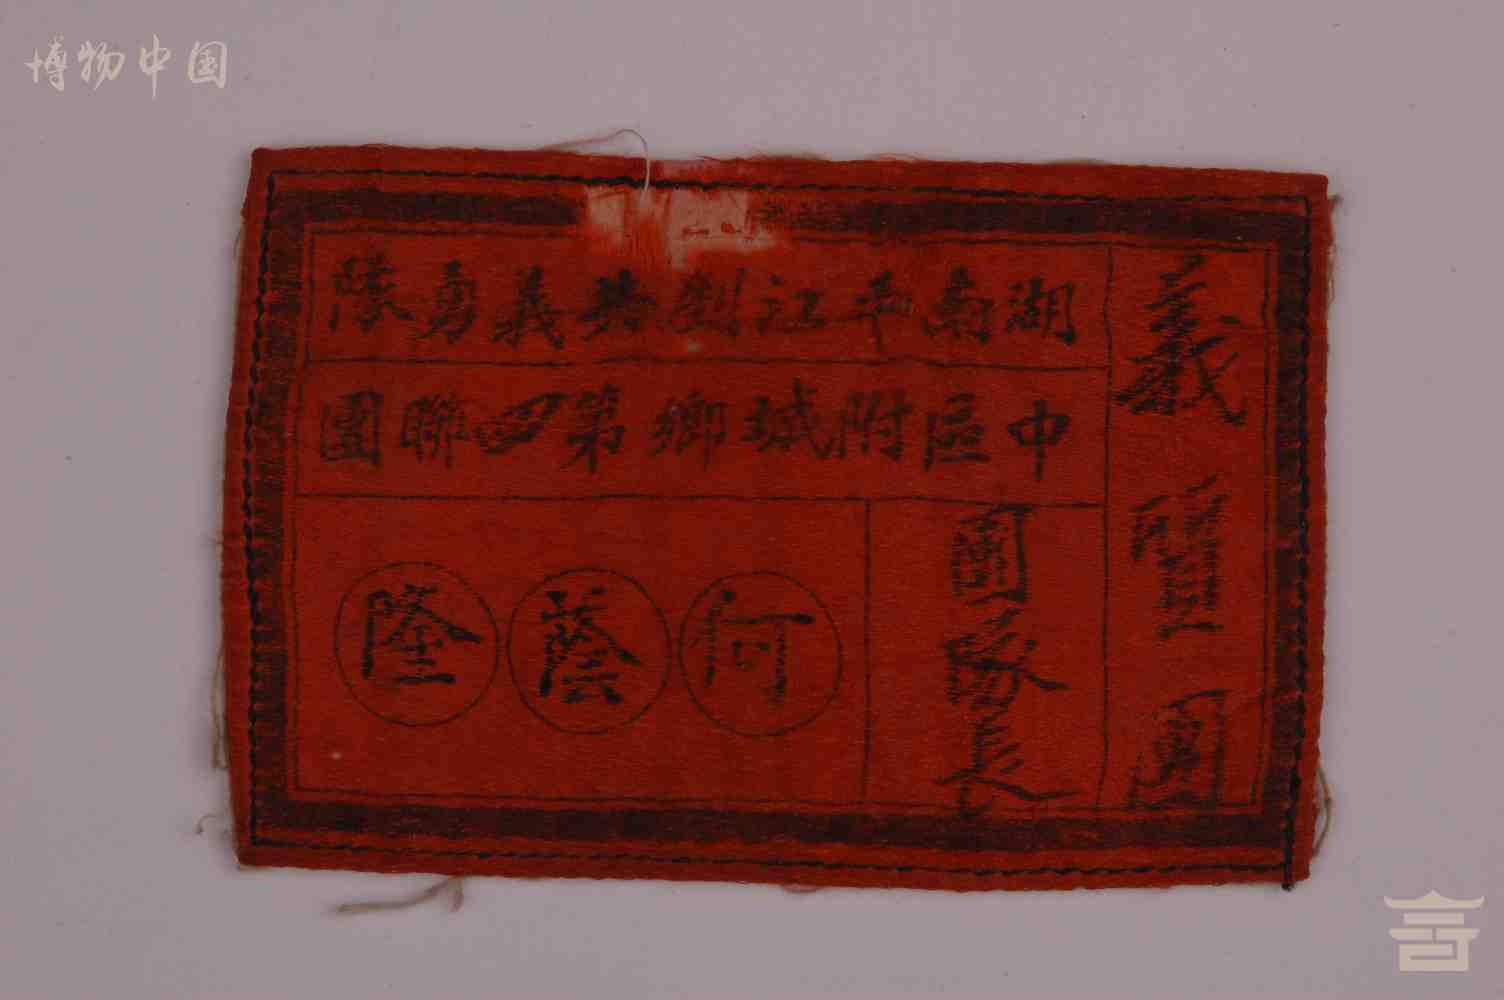 博物中国
義團
湖南平江剷共義勇隊
中區附城鄉第四聯團
團隊長
何蔭隆